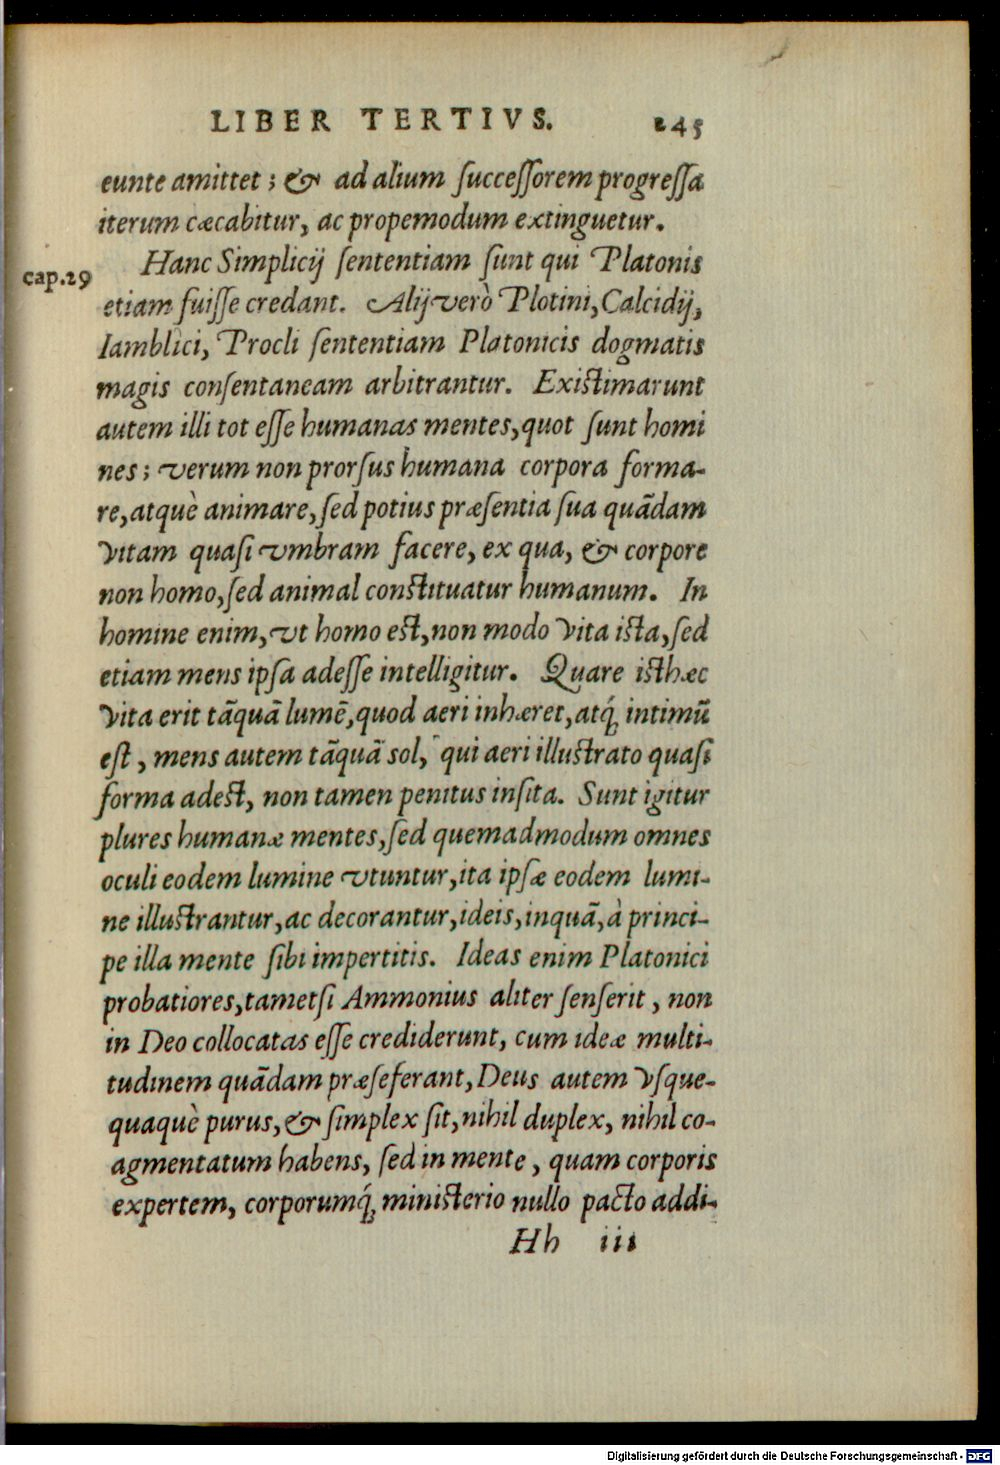 LIBER TERTIVS. 245
eunte amittet; & ad alium ſucceſſorem progreſſa
iterum cæcabitur, ac propemodum extinguetur.
cap.29
Hanc Simplicij ſententiam ſunt qui Platonis
etiam fuiſſe credant. Alij verò Plotini, Calcidij,
Iamblici, Procli ſententiam Platonicis dogmatis
magis conſentaneam arbitrantur. Exiſtimarunt
autem illi tot eſſe humanas mentes, quot ſunt homi
nes; verum non prorſus humana corpora forma-
re, atquè animare, ſed potius præſentia ſua quãdam
vitam quaſi vmbram facere, ex qua, & corpore
non homo, ſed animal conſtituatur humanum. In
homine enim, vt homo eſt, non modo vita iſta, ſed
etiam mens ipſa adeſſe intelligitur. Quare iſthæc
vita erit tãquã lumẽ, quod aeri inhæret, atq́ꝫ intimũ
eſt, mens autem tãquã sol, qui aeri illuſtrato quaſi
forma adeſt, non tamen penitus inſita. Sunt igitur
plures humanæ mentes, ſed quemadmodum omnes
oculi eodem lumine vtuntur, ita ipſæ eodem lumi-
ne illuſtrantur, ac decorantur, ideis, inquã, à princi-
pe illa mente ſibi impertitis. Ideas enim Platonici
probatiores, tametſi Ammonius aliter ſenſerit, non
in Deo collocatas eſſe crediderunt, cum ideæ multi-
tudinem quãdam præſeferant, Deus autem vſque-
quaquè purus, & ſimplex ſit, nihil duplex, nihil co-
agmentatum habens, ſed in mente, quam corporis
expertem, corporumq́ꝫ miniſterio nullo pacto addi-
Hh iii
Digitalisierung gefördert durch die Deutsche Forschungsgemeinschaft - DFG